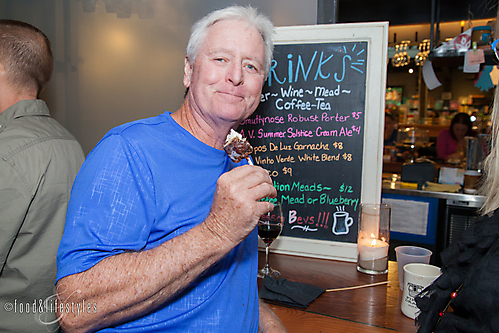 DRINKS
Wine ~ Mead ~
Coffee - Tea
Smuttynose Robust Porter $5
A.V. Summer Solstice Cream Ale $4
pos De Luz Garnacha $8
Vinho Verde White Blend $8
$9
Meads ~ $12
Mead or Blueberry
Bevs!!!
©food&lifestyles